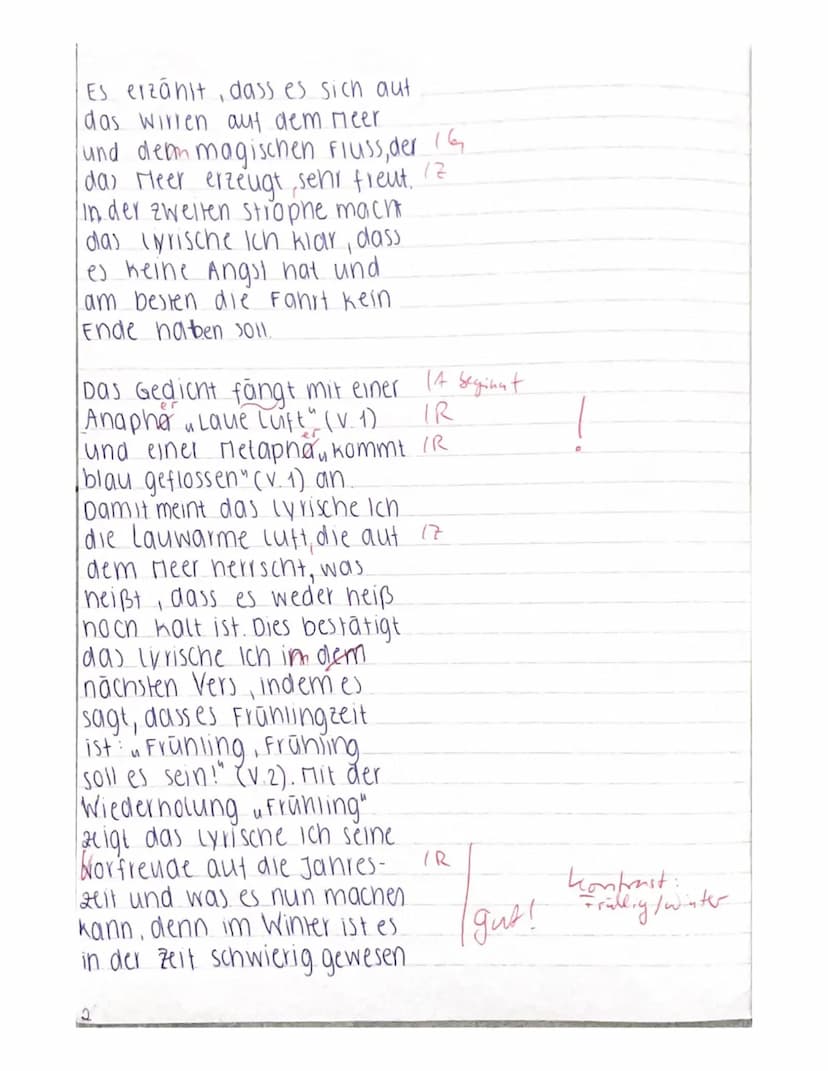 Es erzählt, dass es sich auf
das Wirren auf dem Meer
und dem magischen Fluss, der /G
das Meer erzeugt, sehr freut. /Z
In der zweiten Strophe macht
das lyrische Ich klar, dass
es keine Angst hat und
am besten die Fahrt kein
Ende haben soll.
Das Gedicht fängt mit einer /A beginnt
Anapher „Laue Luft" (V. 1) /R !
und einer Metapher „kommt /R
blau geflossen" (V. 1) an.
Damit meint das lyrische Ich
die lauwarme Luft, die auf /Z
dem Meer herrscht, was
heißt, dass es weder heiß
noch kalt ist. Dies bestätigt
das lyrische Ich im dem
nächsten Vers, indem es
sagt, dass es Frühlingzeit
ist: „Frühling, Frühling
soll es sein!" (V. 2). Mit der
Wiederholung „Frühling"
zeigt das lyrische Ich seine
Vorfreude auf die Jahres- /R
zeit und was es nun machen gut! Kontrast: Frühling/Winter
kann, denn im Winter ist es
in der Zeit schwierig gewesen
2